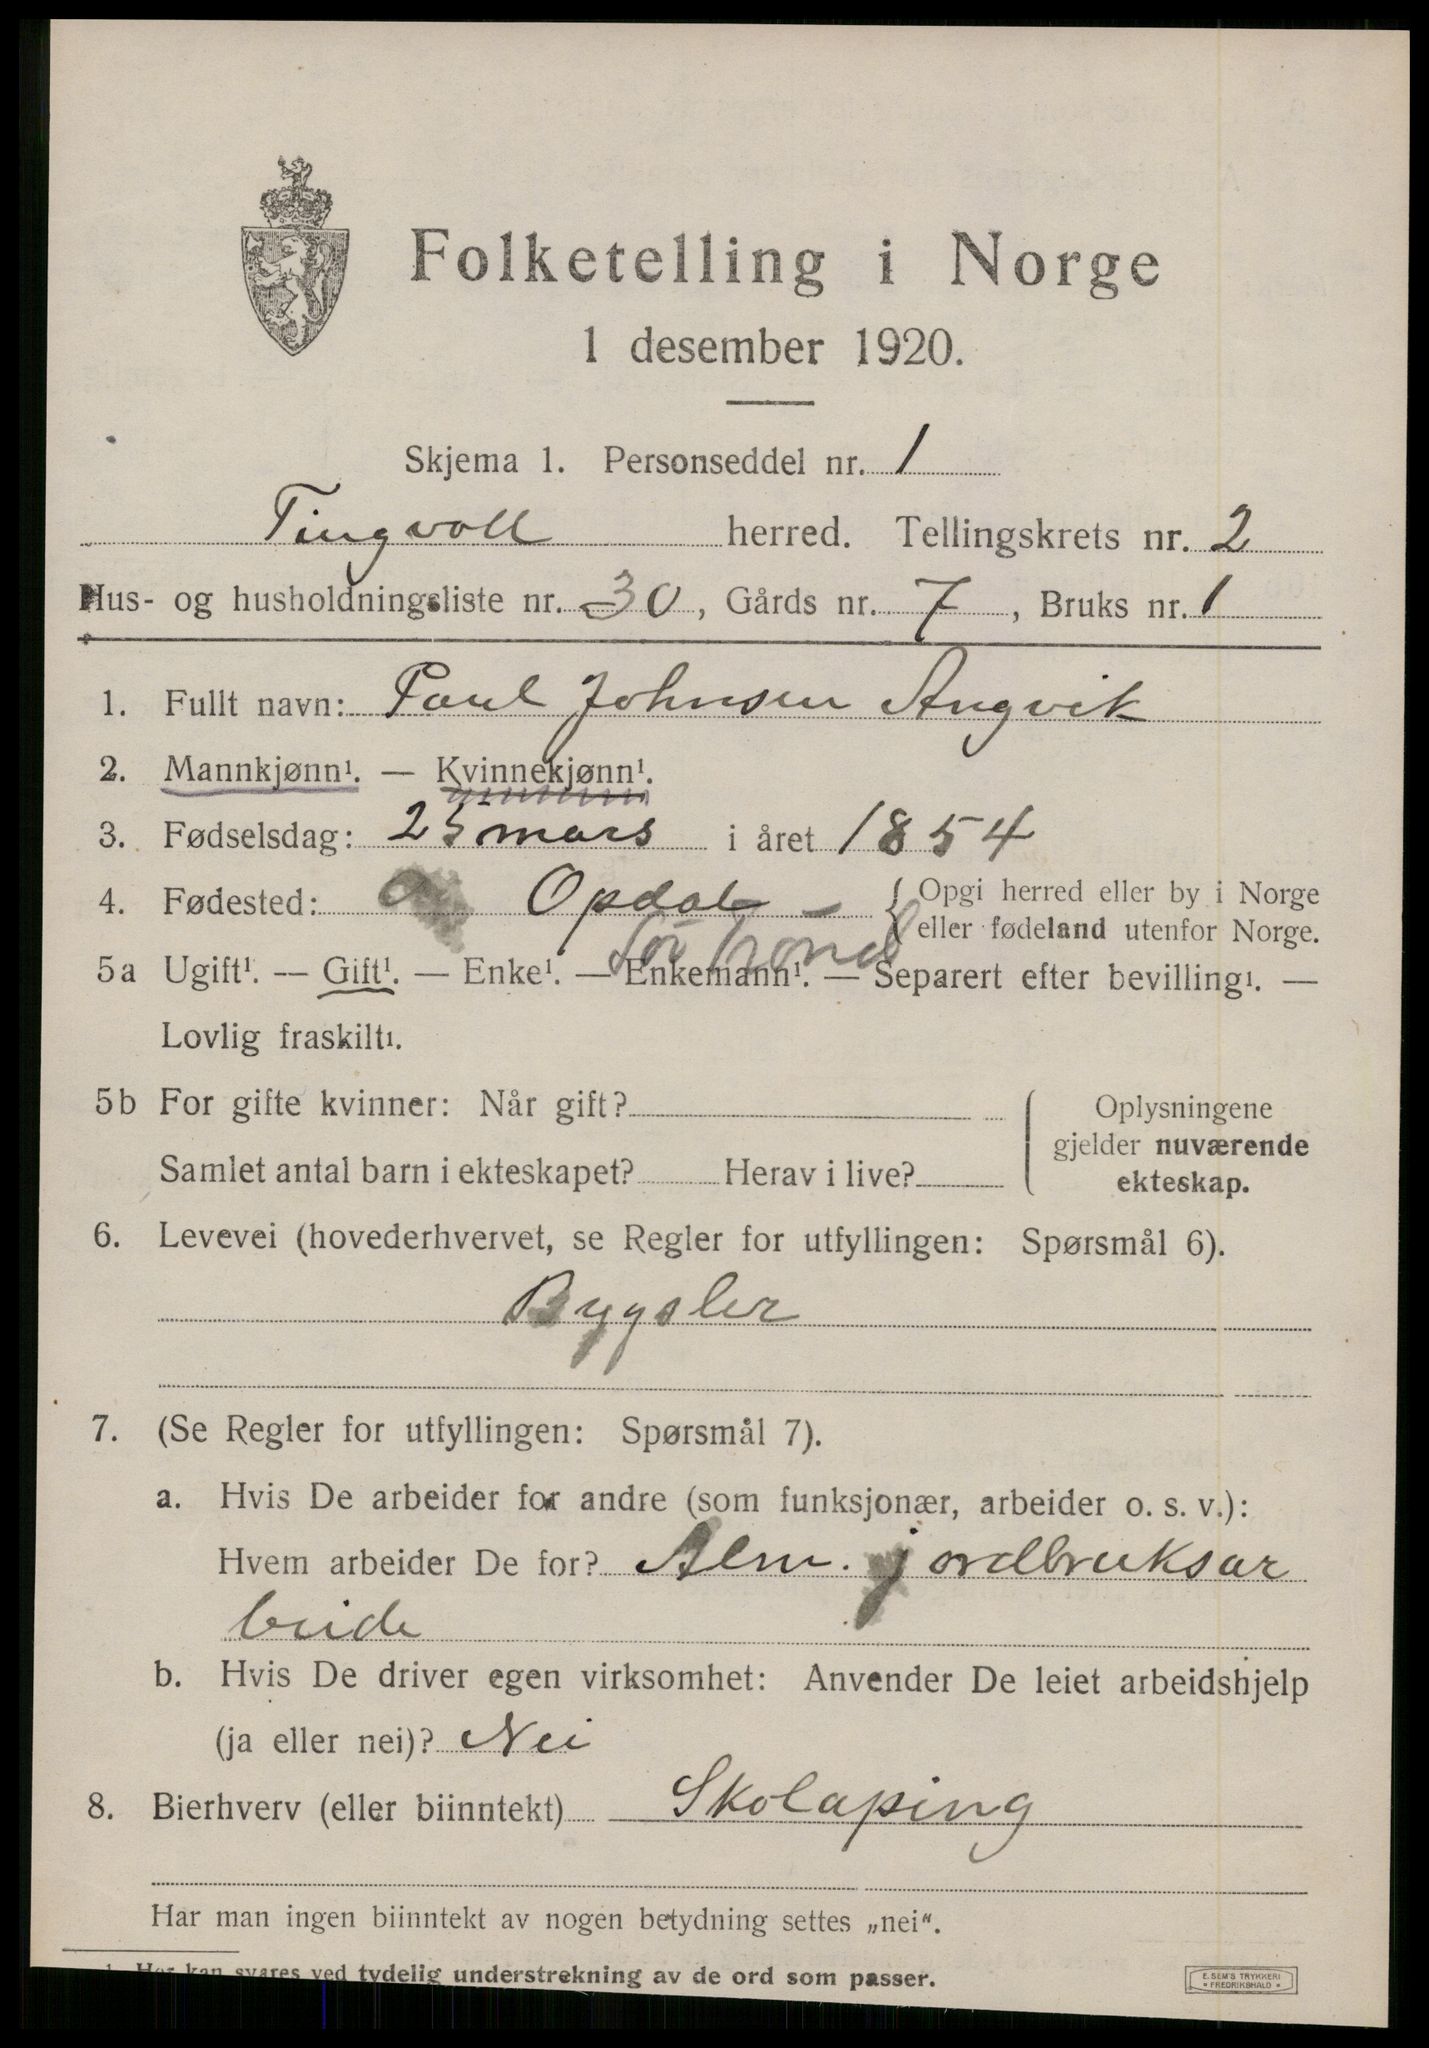 Folketelling i Norge
1 desember 1920.
Skjema 1. Personseddel nr. 1
Tingvoll herred. Tellingskrets nr. 2
Hus- og husholdningsliste nr. 30, Gårds nr. 7, Bruks nr. 1
1. Fullt navn: Paul Johnsen Angvik
2. Mannkjønn¹. — Kvinnekjønn¹.
3. Fødselsdag: 25 mars i året 1854
4. Fødested: Opdal — { Opgi herred eller by i Norge
eller fødeland utenfor Norge.
Sör Trond
5a Ugift¹. — Gift¹. — Enke¹. — Enkemann¹. — Separert efter bevilling¹. —
Lovlig fraskilt¹.
5b For gifte kvinner: Når gift? Oplysningene
gjelder nuværende
Samlet antal barn i ekteskapet? Herav i live? ekteskap.
6. Levevei (hovederhvervet, se Regler for utfyllingen: Spørsmål 6).
Bygsler
7. (Se Regler for utfyllingen: Spørsmål 7).
a. Hvis De arbeider for andre (som funksjonær, arbeider o. s. v.):
Hvem arbeider De for? Alm. jordbruksar
beide
b. Hvis De driver egen virksomhet: Anvender De leiet arbeidshjelp
(ja eller nei)? Nei
8. Bierhverv (eller biinntekt) Skolaping
Har man ingen biinntekt av nogen betydning settes „nei“.
¹ Her kan svares ved tydelig understrekning av de ord som passer.
E. SEM'S TRYKKERI
» FREDRIKSHALD «